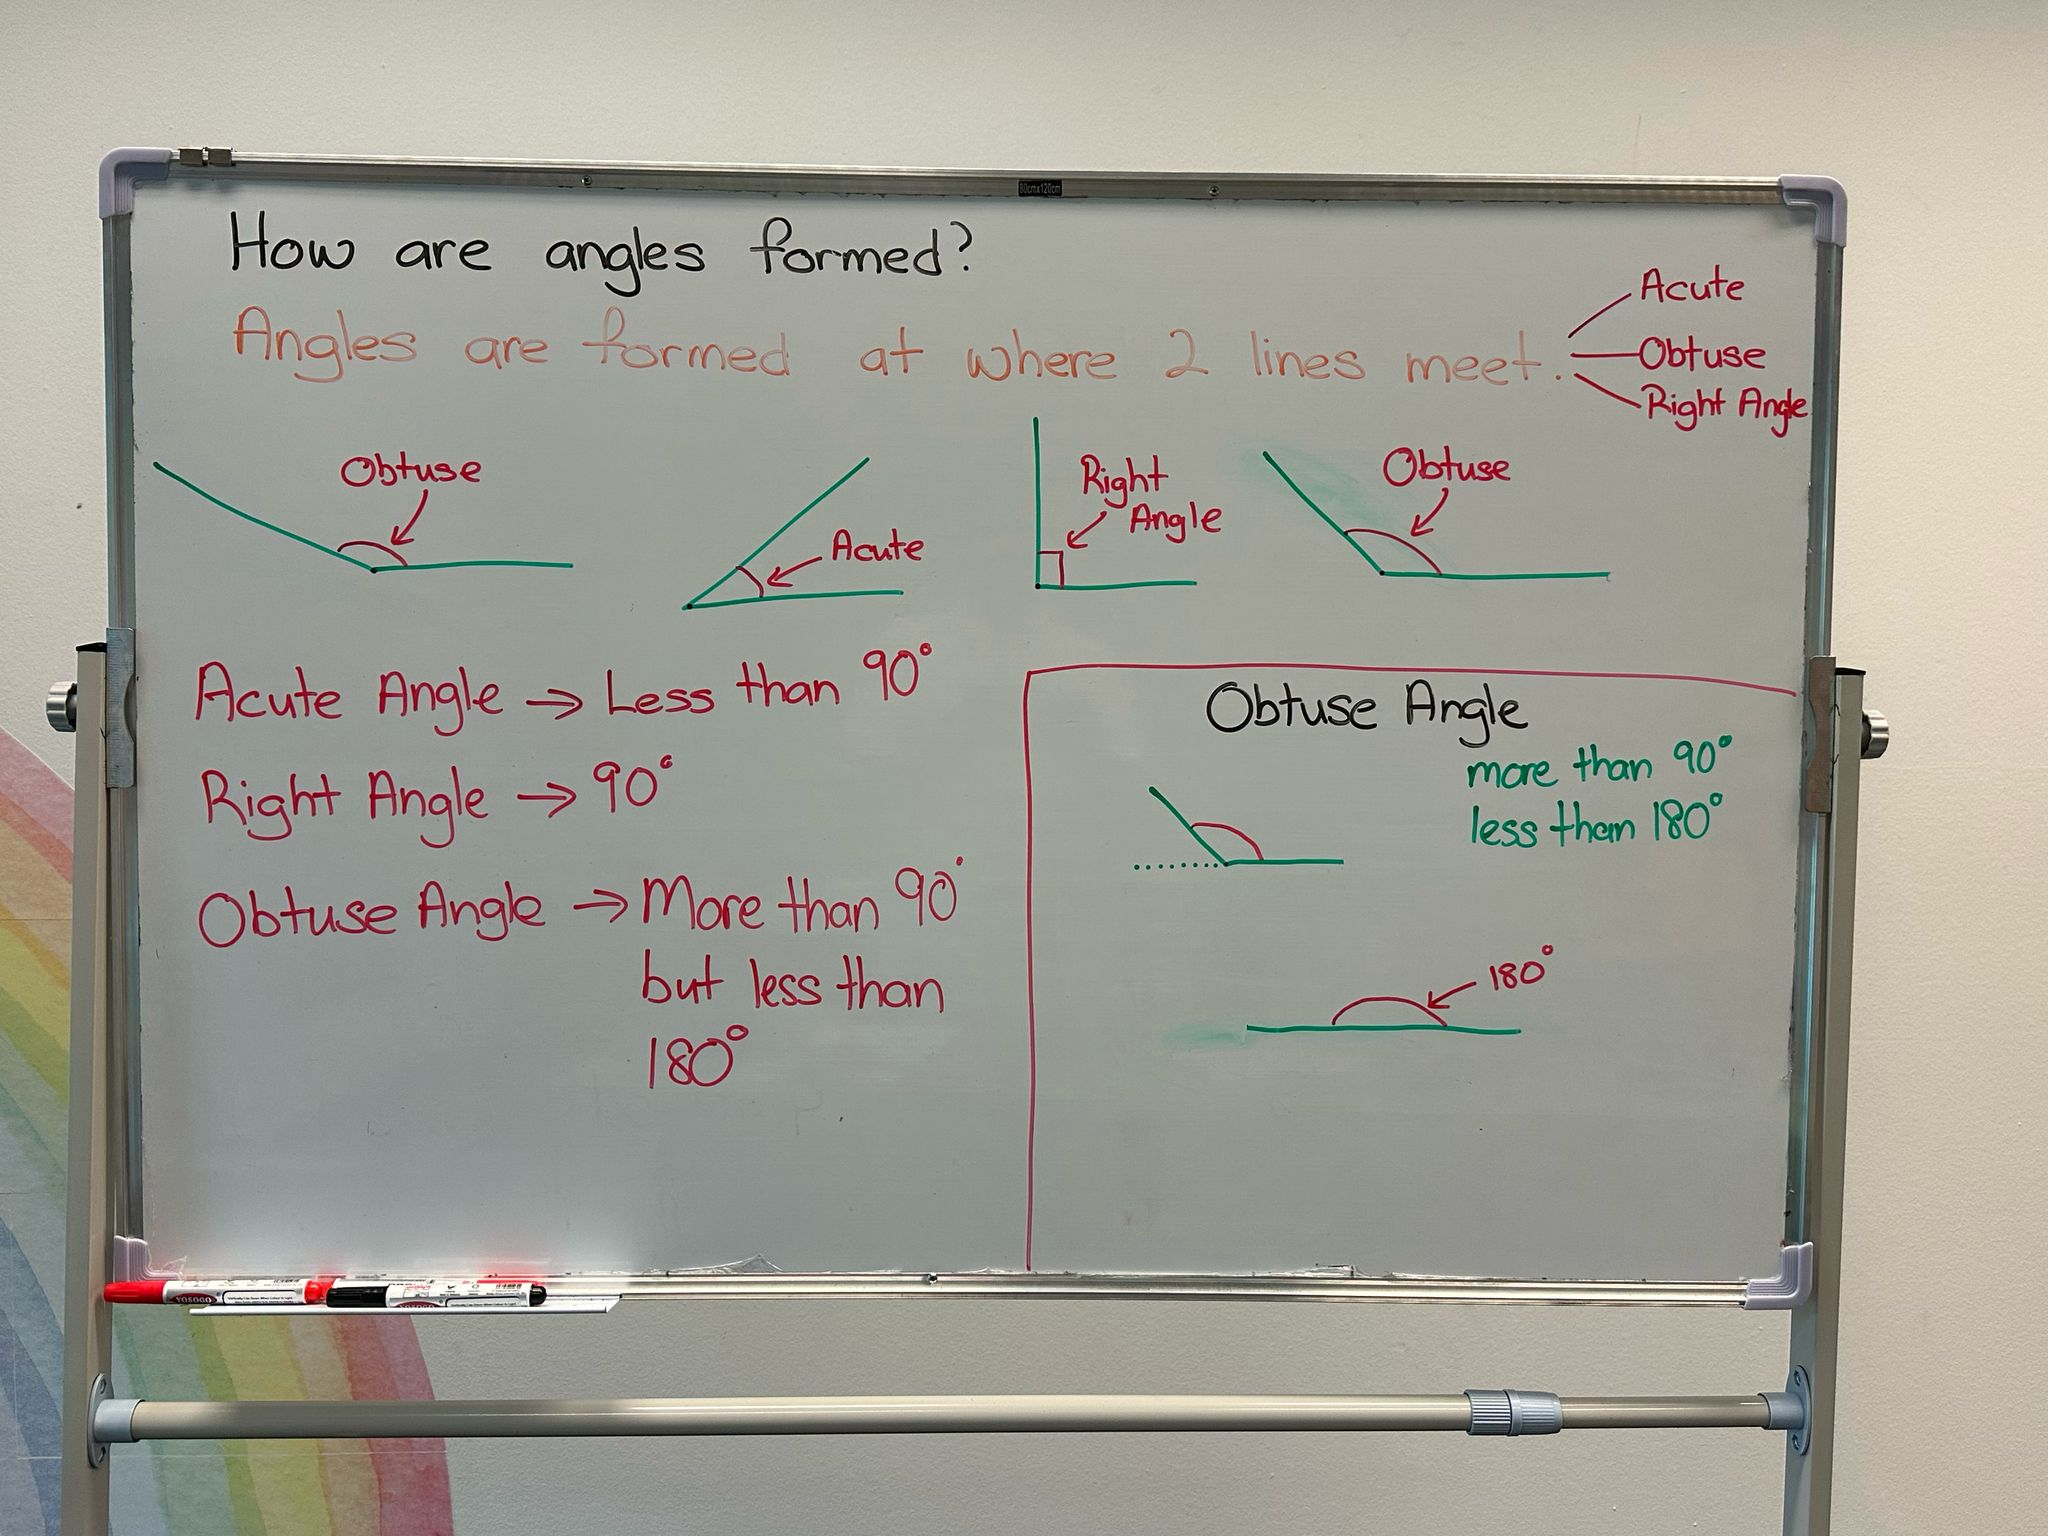 80cmx120cm
How are angles formed?
Angles are formed at where 2 lines meet.
Acute
Obtuse
Right Angle
Obtuse
Acute
Right
Angle
Obtuse
Acute Angle → Less than 90°
Right Angle → 90°
Obtuse Angle → More than 90°
but less than
180°
Obtuse Angle
more than 90°
less than 180°
180°
YOSOGO